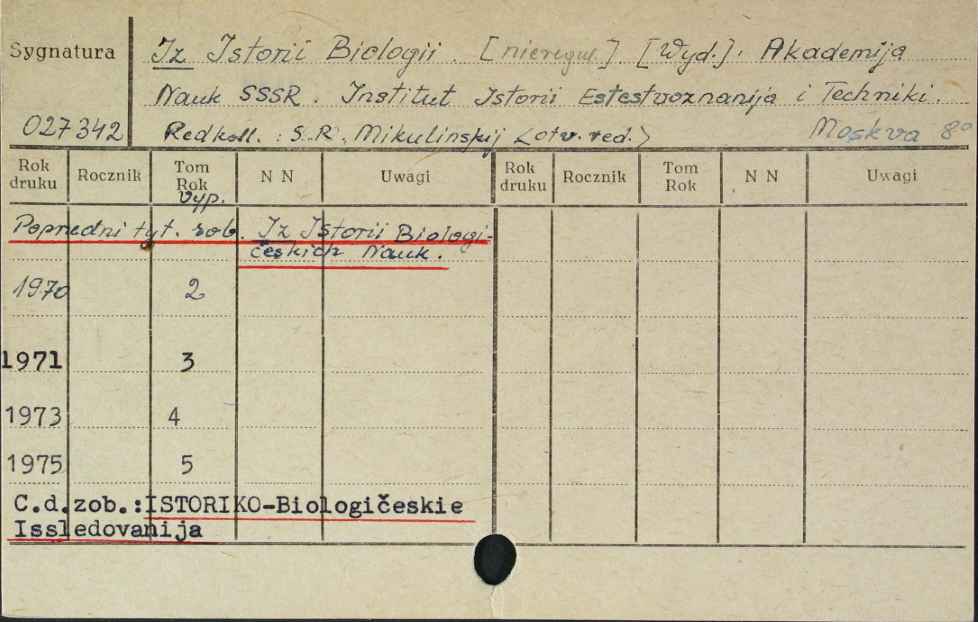 Sygnatura
Iz Istorii Biologii. [nieregul.] [Wyd.]. Akademija
Nauk SSSR. Institut Istorii Estestvoznanija i Techniki.
027342 Redkoll.: S.R. Mikulinskij <otv. red.> Moskva 8°
Rok druku Rocznik Tom Rok N N Uwagi Rok druku Rocznik Tom Rok N N Uwagi
Vyp.
Poprzedni tyt. zob. Iz Istorii Biologi-
českich Nauk.
1970 2
1971 3
1973 4
1975 5
C.d.zob.:ISTORIKO-Biologičeskie
Issledovanija